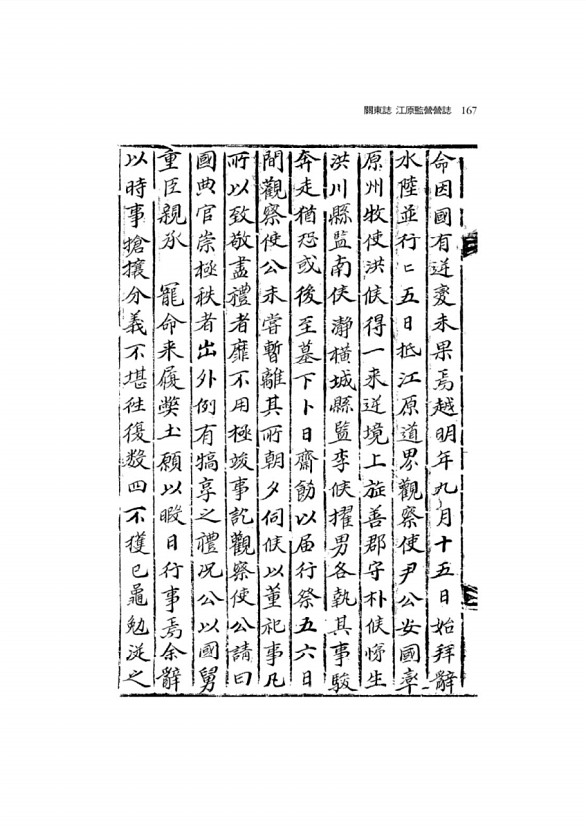 關東誌 江原監營營誌 167
命因國有逆変未果焉越明年九月十五日始拜辭
水陸並行〻五日抵江原道界觀察使尹公安國率
原州牧使洪候得一来逆境上旌善郡守朴候悌生
洪川縣監南侯瀞橫城縣監李候擢男各執其事駿
奔走猶恐或後至墓下卜日齋飭以届行祭五六日
間觀察使公未嘗暫離其所朝夕伺候以董祀事凡
所以致敬盡禮者靡不用極竣事訖觀察使公請曰
國典官崇極秩者出外例有犒享之禮况公以國舅
重臣親承 寵命来履獘土願以暇日行事焉余辭
以時事搶攘分義不堪往復数四不獲已黽勉從之